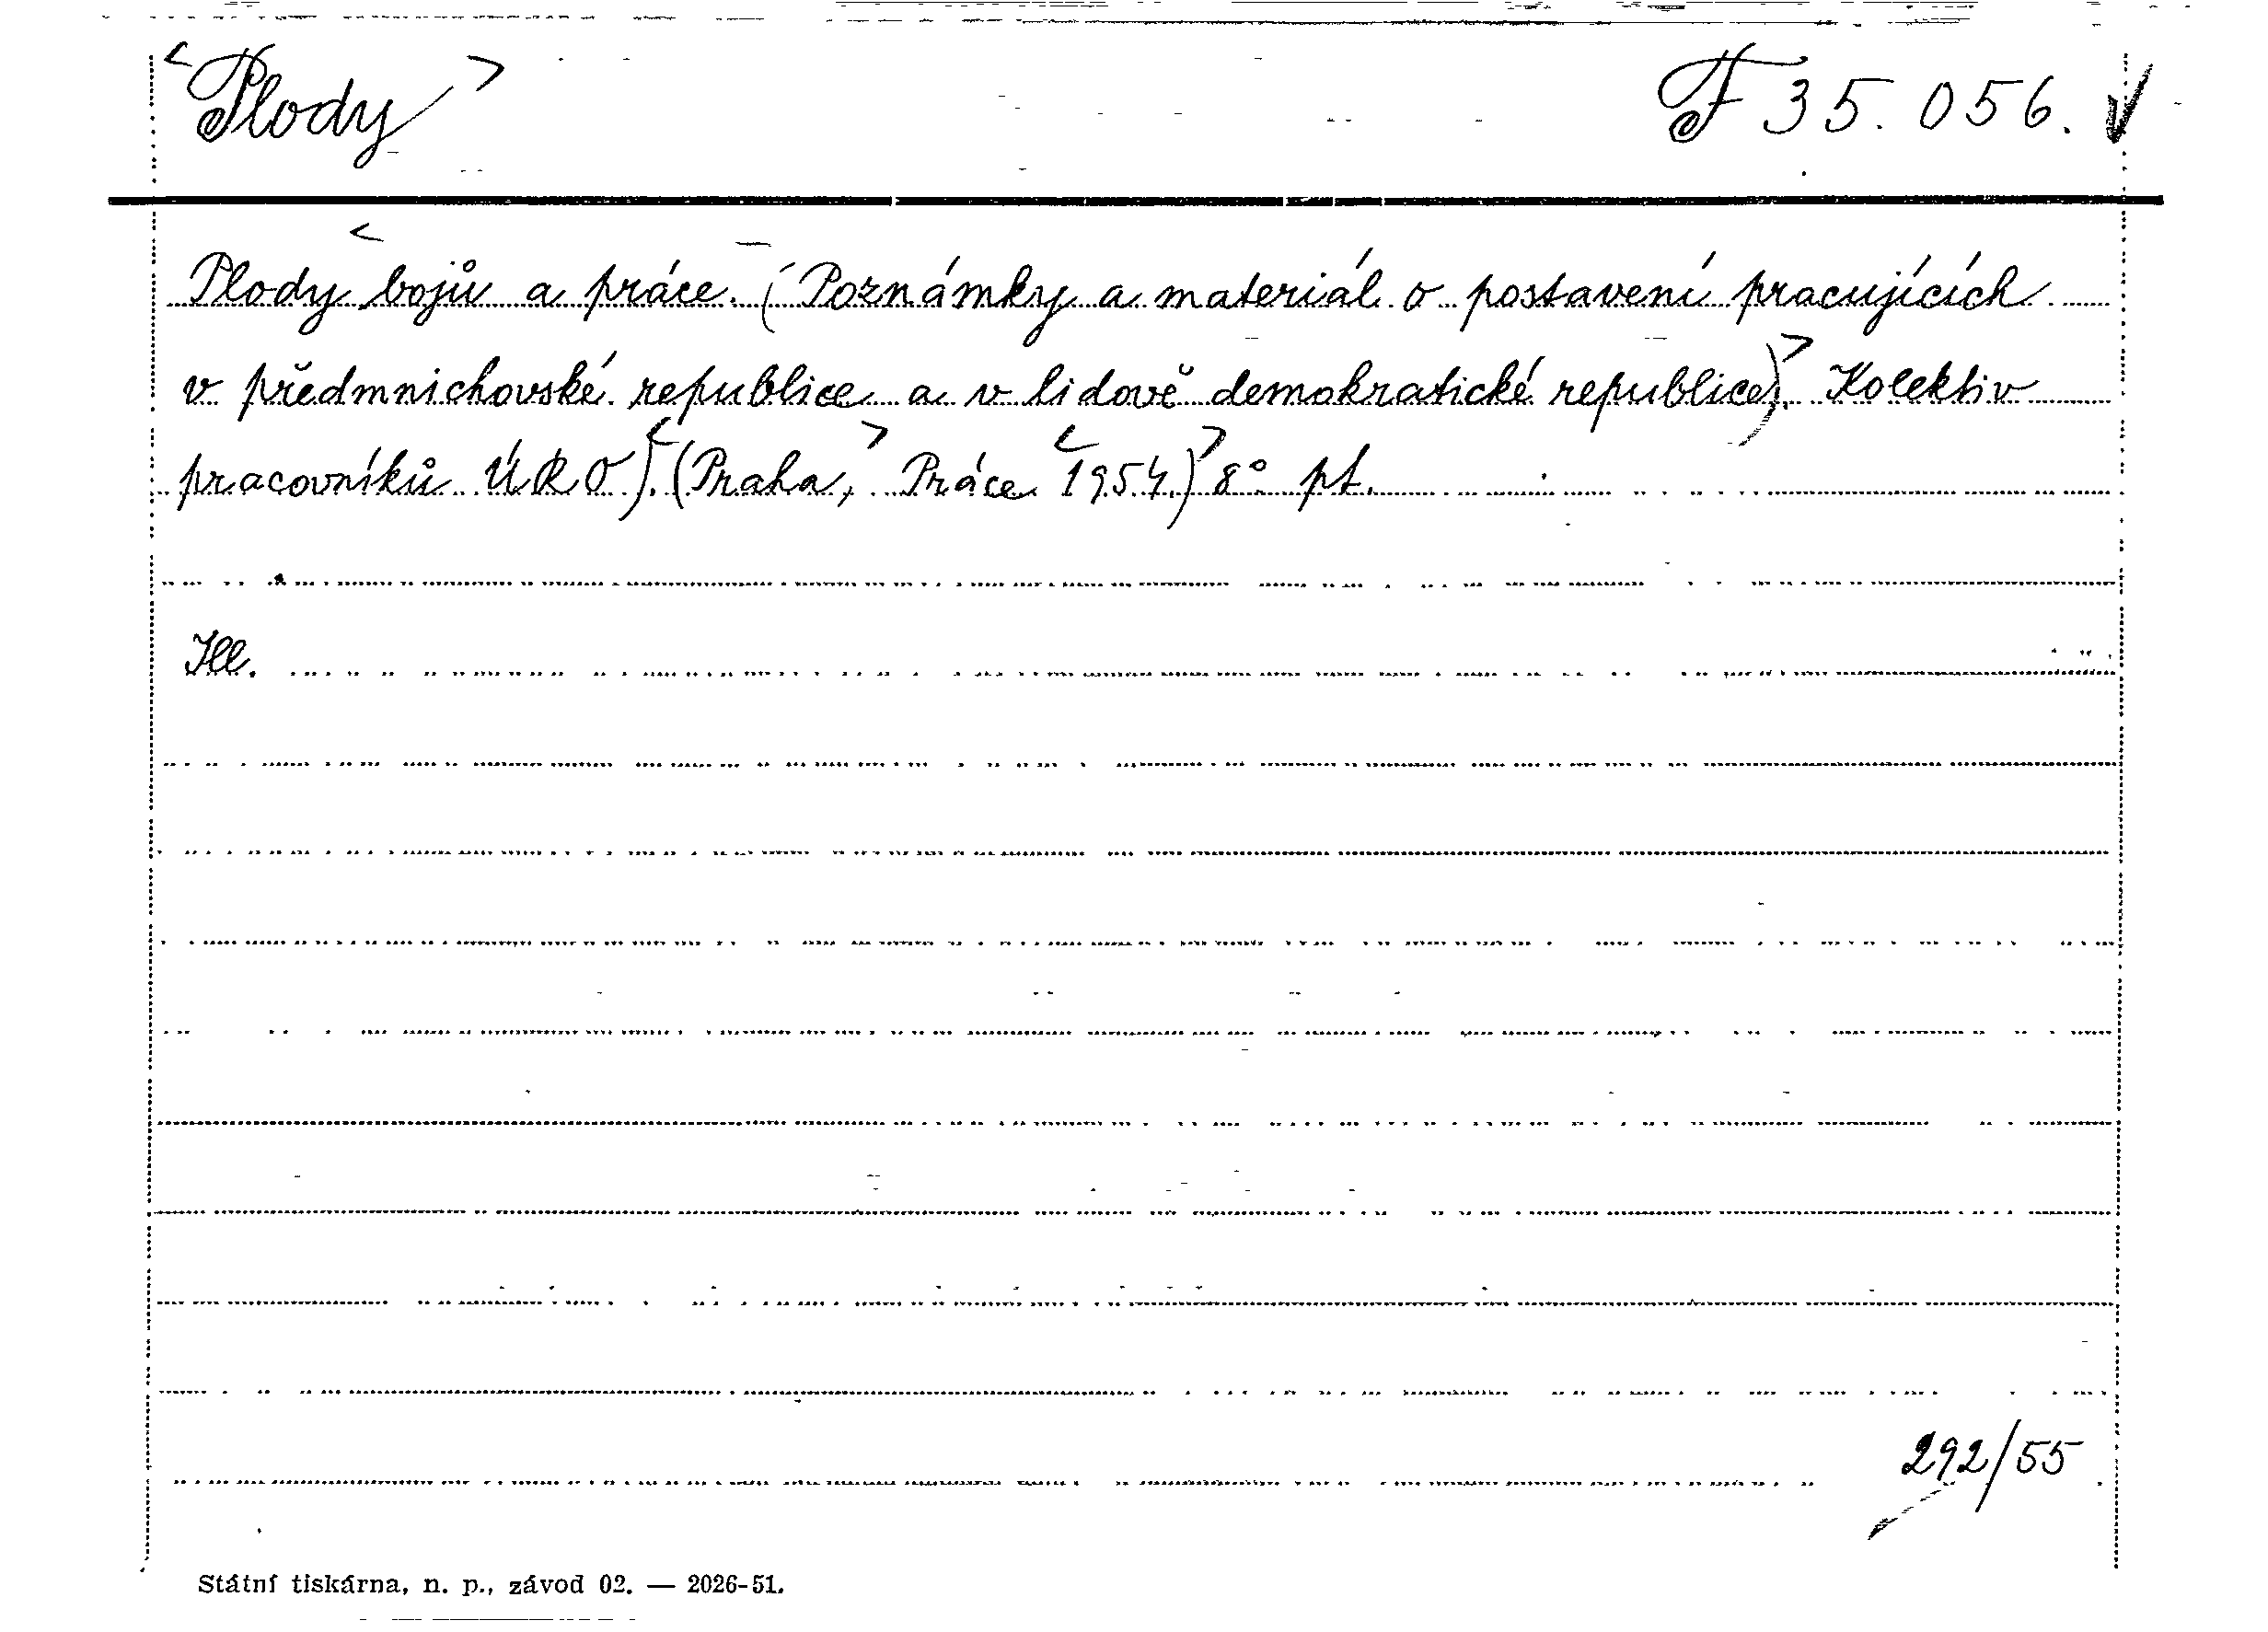 <Plody> F 35.056.
Plody bojů a práce. (Poznámky a materiál o postavení pracujících
v předmnichovské republice a v lidově demokratické republice). Kolektiv
pracovníků ÚRO). (Praha, Práce 1954.) 8° pt.
Ill.
292/55
Státní tiskárna, n. p., závod 02. — 2026-51.